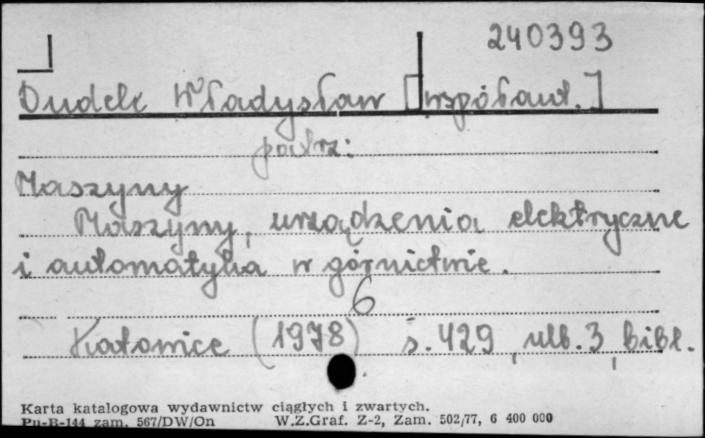 240393
Dudek Władysław [współaut.]
patrz:
Maszyny
Maszyny, urządzenia elektryczne
i automatyka w górnictwie.
6
Katowice (1978) s. 429, ulb. 3, bibl.
Karta katalogowa wydawnictw ciągłych i zwartych.
Pu-B-144 zam. 567/DW/On W.Z.Graf. Z-2, Zam. 502/77, 6 400 000